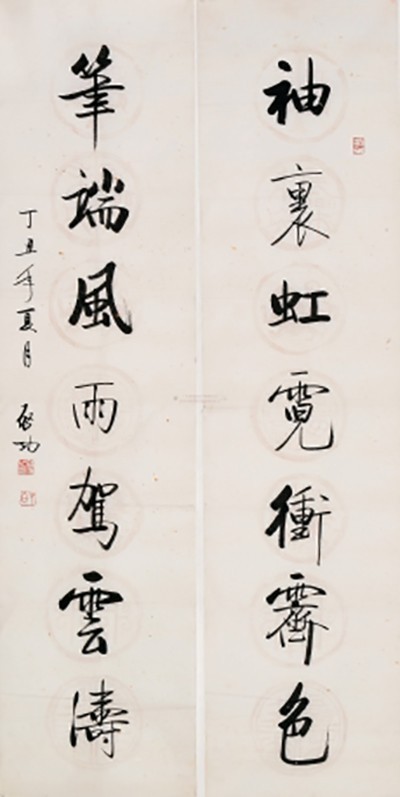 袖裏虹霓衝霽色
筆端風雨駕雲濤
丁丑年夏月 啟功